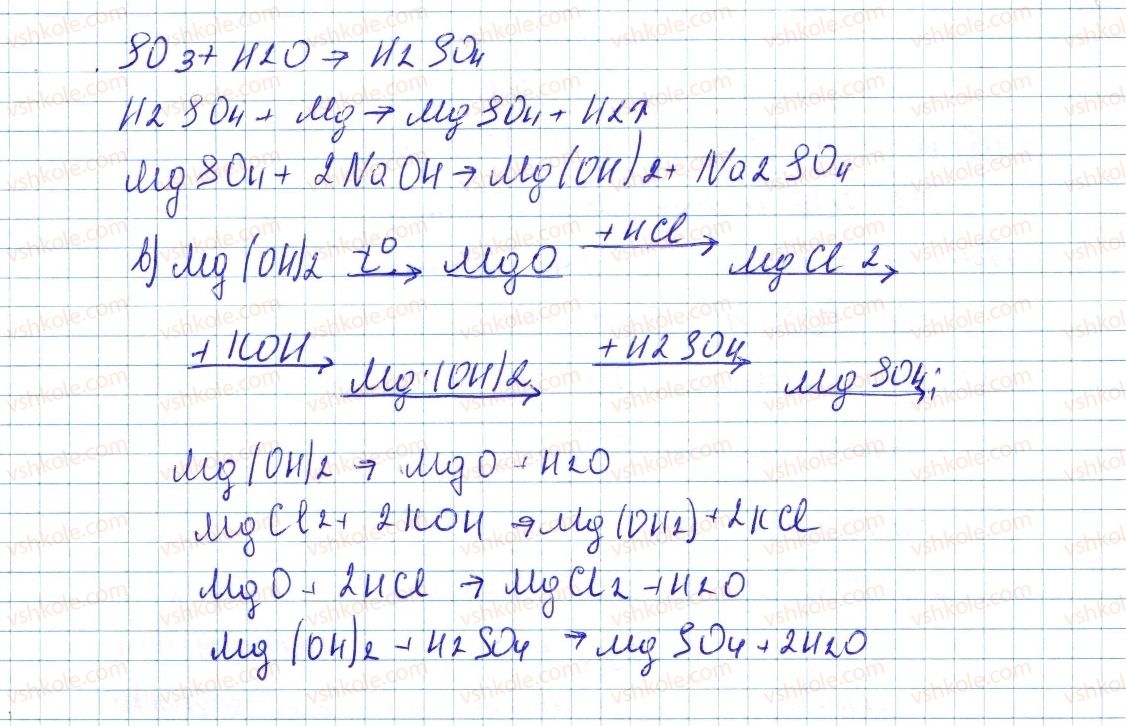 SO3 + H2O → H2SO4
H2SO4 + Mg → MgSO4 + H2↑
MgSO4 + 2NaOH → Mg(OH)2 + Na2SO4
в) Mg(OH)2 t° → MgO +HCl → MgCl2 →
+KOH → Mg(OH)2 → +H2SO4 → MgSO4;
Mg(OH)2 → MgO + H2O
MgCl2 + 2KOH → Mg(OH2) + 2KCl
MgO + 2HCl → MgCl2 + H2O
Mg(OH)2 + H2SO4 → MgSO4 + 2H2O
vshkole.com